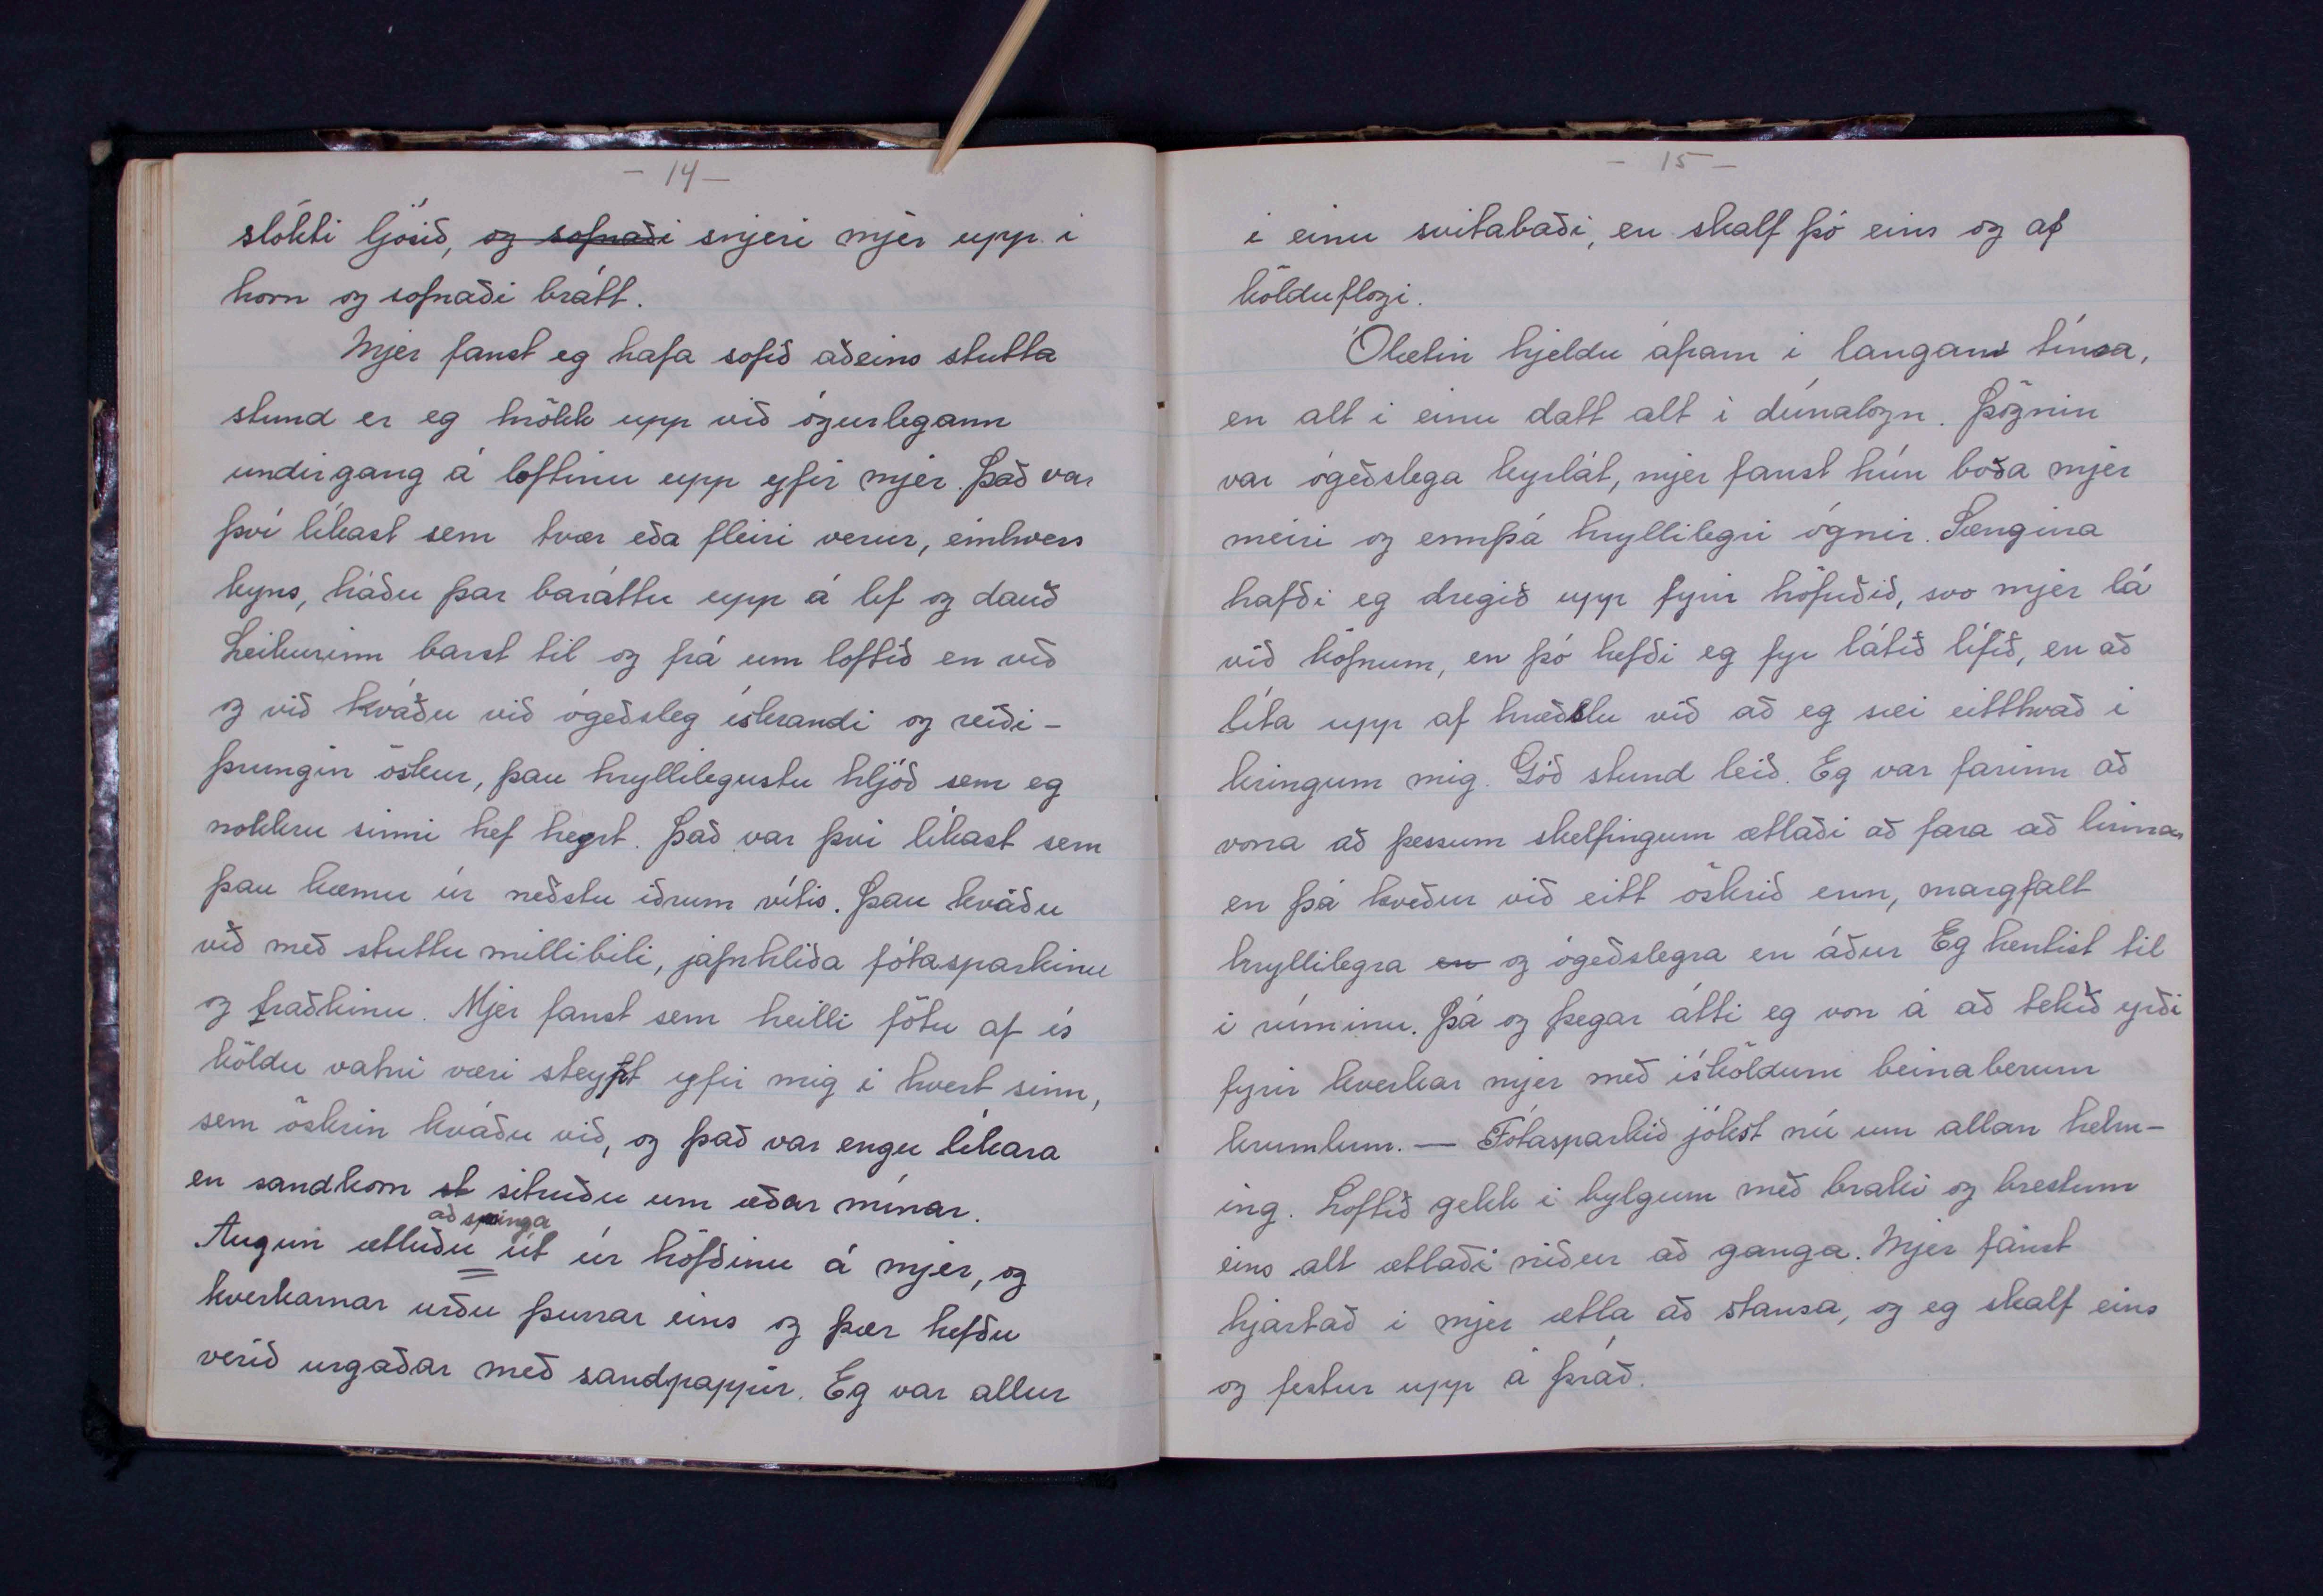 - 14 -
slökti ljósið, og sofnaði snjeri mjer upp í
horn og sofnaði brátt.
Mjer fanst eg hafa sofið aðeins stutta
stund er eg hrökk upp við ógurlegann
undirgang á loftinu upp yfir mjer. Það var
því líkast sem tvær eða fleiri verur, einhvers
kyns, háðu þar baráttu upp á líf og dauð
Leikurinn barst til og frá um loftið en við
og við kváðu við ógeðsleg ískrandi og reiði-
þrungin öskur, þau hryllilegustu hljóð sem eg
nokkru sinni hef heyrt. Það var því líkast sem
þau kæmu úr neðstu iðrum vítis. Þau kváðu
við með stuttu millibili, jafnhliða fótasparkinu
og traðkinu. Mjer fanst sem heilli fötu af ís
köldu vatni væri steypt yfir mig í hvert sinn,
sem öskrin kváðu við, og það var engu líkara
en sandkorn st sitruðu um æðar mínar.
að springa
Augun ætluðu út úr höfðinu á mjer, og
kverkarnar urðu þurrar eins og þær hefðu
verið urgaðar með sandpappír. Eg var allur
- 15 -
í einu svitabaði, en skalf þó eins og af
kölduflogi.
Ólætin hjeldu áfram í langann tíma,
en alt í einu datt alt í dúnalogn. Þögnin
var ógeðslega kyrlát, mjer fanst hún boða mjer
meiri og ennþá hryllilegri ógnir. Sængina
hafði eg dregið upp fyrir höfuðið, svo mjer lá
við köfnum, en þó hefði eg fyr látið lífið, en að
líta upp af hræðslu við að eg sæi eitthvað í
kringum mig. Góð stund leið. Eg var farinn að
vona að þessum skelfingum ætlaði að fara að linna,
en þá kveður við eitt öskrið enn, margfalt
hryllilegra en og ógeðslegra en áður Eg hentist til
í rúminu. Þá og þegar átti eg von á að tekið yrði
fyrir kverkar mjer með ísköldum beinaberum
krumlum. — Fótasparkið jókst nú um allan helm-
ing. Loftið gekk í bylgjum með braki og brestum
eins alt ætlaði niður að ganga. Mjer fanst
hjartað í mjer ætla að stansa, og eg skalf eins
og festur upp á þráð.